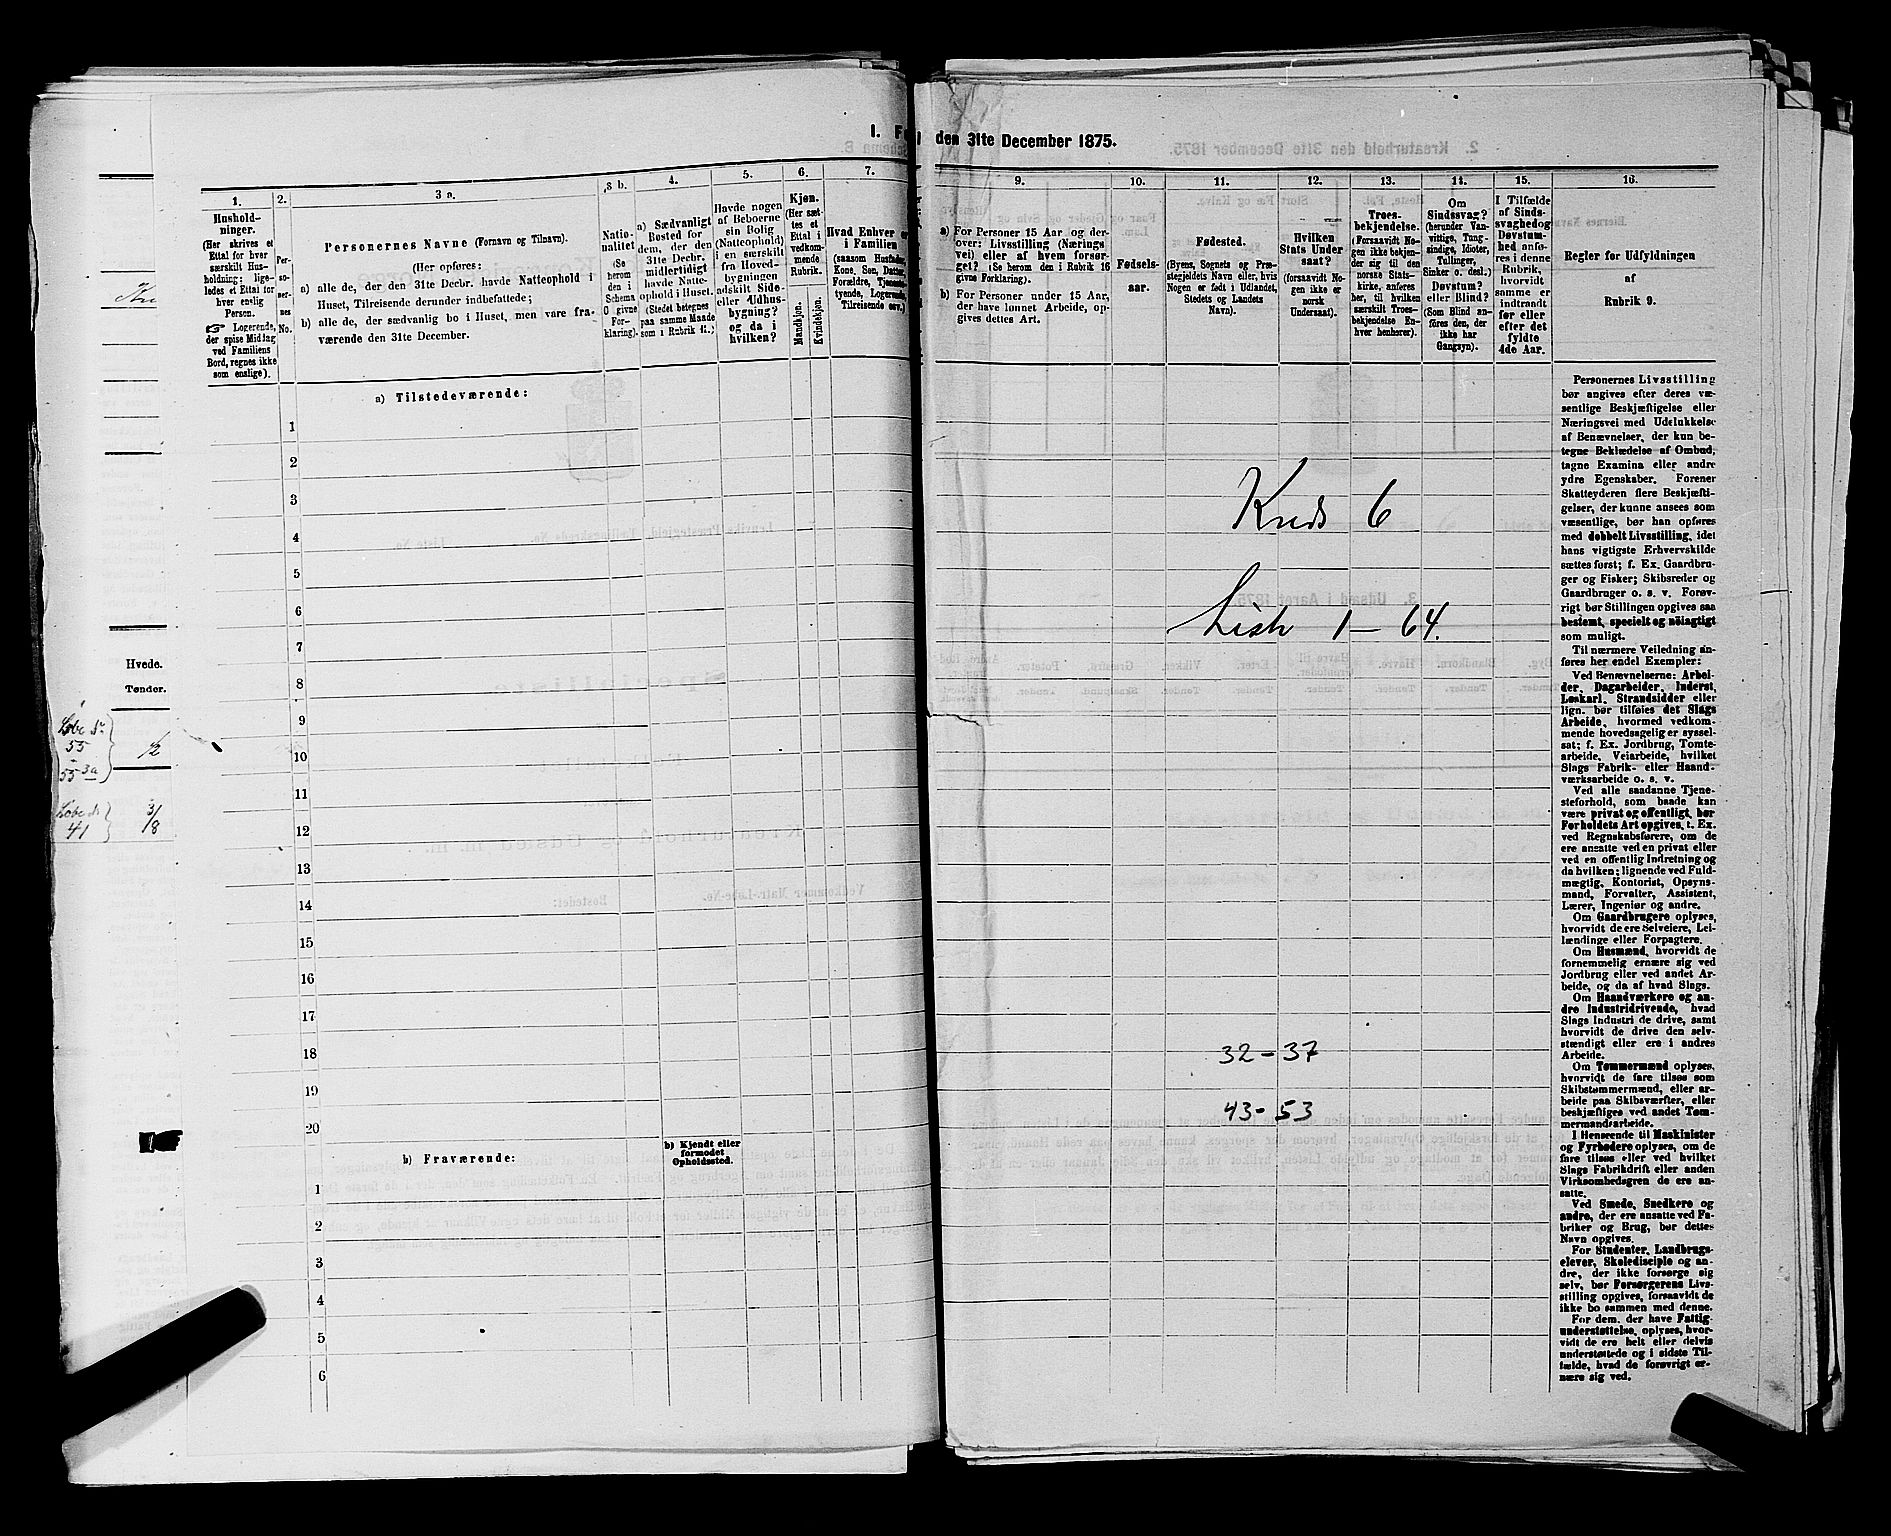 I. F
den 31te December 1875.
1.
Hushold-
ninger.
(Her skrives et
Ettal for hver
særskilt Hus-
holdning; lige-
ledes et Ettal for
hver enslig
Person.
☞ Logerende,
der spise Middag
ved Familiens
Bord, regnes ikke
som enslige).
2.
Per-
so-
ner-
nes
No.
3 a.
Personernes Navne (Fornavn og Tilnavn).
(Her opføres:
a) alle de, der den 31te Decbr. havde Natteophold i
Huset, Tilreisende derunder indbefattede;
b) alle de, der sædvanlig bo i Huset, men vare fra-
værende den 31te December.
3 b.
Natio-
nalitet
(Se
herom
den i
Schema
O givne
For-
klaring).
4.
a) Sædvanligt
Bosted for
dem, der den
31te Decbr.
midlertidigt
havde Natte-
ophold i Huset.
(Stedet betegnes
paa samme Maade
som i Rubrik 11.)
5.
Havde nogen
af Beboerne
sin Bolig
(Natteophold)
i en særskilt
fra Hoved-
bygningen
adskilt Side-
eller Udhus-
bygning?
og da i
hvilken?
6.
Kjøn.
(Her sæt-
tes et
Ettal i
vedkom-
mende
Rubrik.
Mandkjøn.
Kvindekjøn.
7.
Hvad Enhver er
i Familien
(saasom Husfader,
Kone, Søn, Datter,
Forældre, Tjeneste-
tyende, Logerende,
Tilreisende osv.)
9.
a) For Personer 15 Aar og der-
over: Livsstilling (Nærings
vei) eller af hvem forsør-
get? (Se herom den i Rubrik 16
givne Forklaring).
b) For Personer under 15 Aar,
der have lønnet Arbeide, op-
gives dettes Art.
10.
Fødsels-
aar.
11.
Fødested.
(Byens, Sognets og Præ-
stegjeldets Navn eller, hvis
Nogen er født i Udlandet,
Stedets og Landets
Navn).
12.
Hvilken
Stats Under
saat?
(forsaavidt No-
gen ikke er
norsk
Undersaat).
13.
Troes-
bekjendelse.
(Forsaavidt No-
gen ikke bekjen-
der sig til den
norske Stats-
kirke, anføres
her, til hvilken
særskilt Troes-
bekjendelse En-
hver henhører).
14.
Om
Sindssvag?
(herunder Van-
vittige, Tung-
sindige, Idioter,
Tullinger,
Sinker o. desl.)
Døvstum?
eller Blind?
(Som Blind an-
føres den, der
ikke har
Gangsyn).
15.
I Tilfælde
af Sinds-
svaghed og
Døvstum-
hed anfø-
res i denne
Rubrik,
hvorvidt
samme er
indtraadt
før eller
efter det
fyldte
4de Aar.
16.
Regler for Udfyldningen
af
Rubrik 9.
a) Tilstedeværende:
1
2
3
4
5
6
7
8
9
10
11
12
13
14
15
16
17
18
19
20
b) Fraværende:
b) Kjendt eller
formodet
Opholdssted.
1
2
3
4
5
6
Hvede.
Tønder.
Løbe No
55
55 3a
1/2
Løbe No
41
3/8
Kreds 6
Liste 1 – 64.
32 – 37
43 – 53
Personernes Livsstilling
bør angives efter deres væ-
sentlige Beskjæftigelse eller
Næringsvei med Udelukkelse
af Benævnelser, der kun be-
tegne Beklædelse af Ombud,
tagne Examina eller andre
ydre Egenskaber. Forener
Skatteyderen flere Beskjæfti-
gelser, der kunne ansees som
væsentlige, bør han opføres
med dobbelt Livsstilling, idet
hans vigtigste Erhvervskilde
sættes først; f. Ex. Gaardbru-
ger og Fisker; Skibsreder og
Gaardbruger o. s. v. Forøv-
rigt bør Stillingen opgives saa
bestemt, specielt og nöiagtigt
som muligt.
Til nærmere Veiledning an-
føres her endel Exempler:
Ved Benævnelserne: Arbei-
der, Dagarbeider, Inderst,
Løskarl, Strandsidder eller
lign. bør tilføies det Slags
Arbeide, hvormed vedkom-
mende hovedsagelig er syssel-
sat; f. Ex. Jordbrug, Tomte-
arbeide, Veiarbeide, hvilket
Slags Fabrik- eller Haand-
værksarbeide o. s. v.
Ved alle saadanne Tjene-
steforhold, som baade kan
være privat og offentligt, bør
Forholdets Art opgives, t. Ex.
ved Regnskabsførere, om de
ere ansatte ved en privat eller
ved en offentlig Indretning og
da hvilken; lignende ved Fuld-
mægtig, Kontorist, Opsyns-
mand, Forvalter, Assistent,
Lærer, Ingeniør og andre.
Om Gaardbrugere oplyses,
hvorvidt de ere Selveiere, Lei-
lændinge eller Forpagtere.
Om Husmænd, hvorvidt de
fornemmelig ernære sig ved
Jordbrug eller ved andet Ar-
beide, og da af hvad Slags.
Om Haandværkere og an-
dre Industridrivende, hvad
Slags Industri de drive, samt
hvorvidt de drive den selv-
stændigt eller ere i andres
Arbeide.
Om Tømmermænd oplyses,
hvorvidt de fare tilsøs som
Skibstømmermænd, eller ar-
beide paa Skibsværfter, eller
beskjæftiges ved andet Tøm-
mermandsarbeide.
I Henseende til Maskinister
og Fyrbødere oplyses, om de
fare tilsøs eller ved hvilket
Slags Fabrikdrift eller anden
Virksomhedsgren de ere an-
satte.
Ved Smede, Snedkere og
andre, der ere ansatte ved Fa-
briker og Brug, bør dettes
Navn opgives.
For Studenter, Landbrugs-
elever, Skoledisciple og an-
dre, der ikke forsørge sig
selv, bør Forsørgerens Livs-
stilling opgives, forsaavidt de
ikke bo sammen med denne.
For dem, der have Fattig-
understøttelse, oplyses, hvor-
vidt de ere helt eller delvis
understøttede og i sidste Til-
fælde, hvad de forøvrigt er-
nære sig ved.